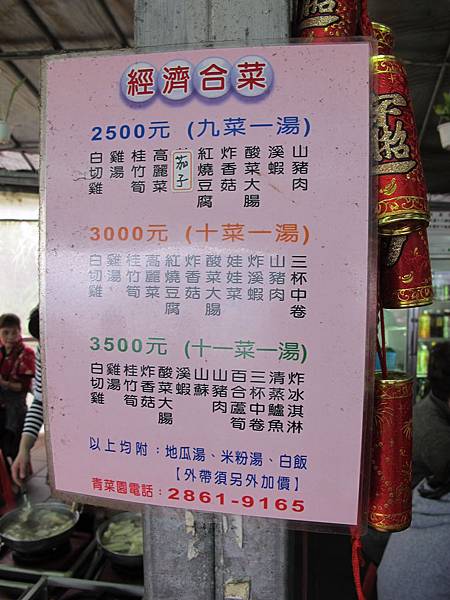 經濟合菜
2500元 (九菜一湯)
白切雞
雞湯
桂竹筍
高麗菜
茄子
紅燒豆腐
炸香菇
酸菜大腸
溪蝦
山豬肉
3000元 (十菜一湯)
白切雞
雞湯
桂竹筍
高麗菜
紅燒豆腐
炸香菇
酸菜大腸
娃娃菜
炸溪蝦
山豬肉
三杯中卷
3500元 (十一菜一湯)
白切雞
雞湯
桂竹筍
炸香菇
酸菜大腸
溪蝦
山蘇
山豬肉
百合蘆筍
三杯中卷
清蒸鱸魚
炸冰淇淋
以上均附：地瓜湯、米粉湯、白飯
【外帶須另外加價】
青菜園電話：2861-9165